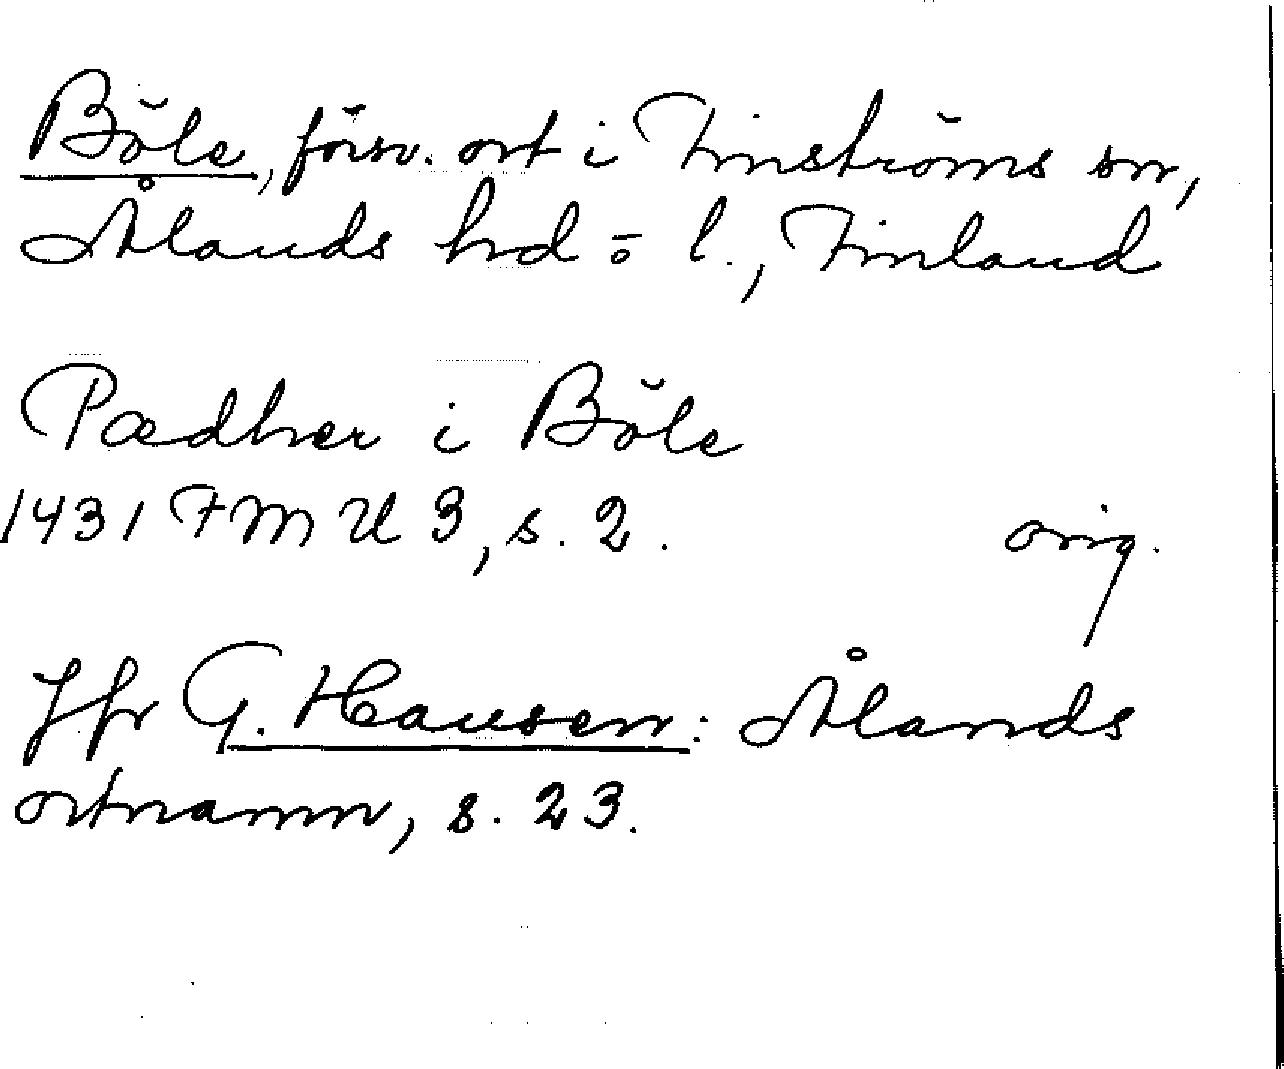 Böle, försv. ort i Finströms sn,
Ålands hd o. l., Finland
Pædher i Böle
1431 FMU 3, s. 2.
orig.
Jfr G. Hausen: Ålands
ortnamn, s. 23.